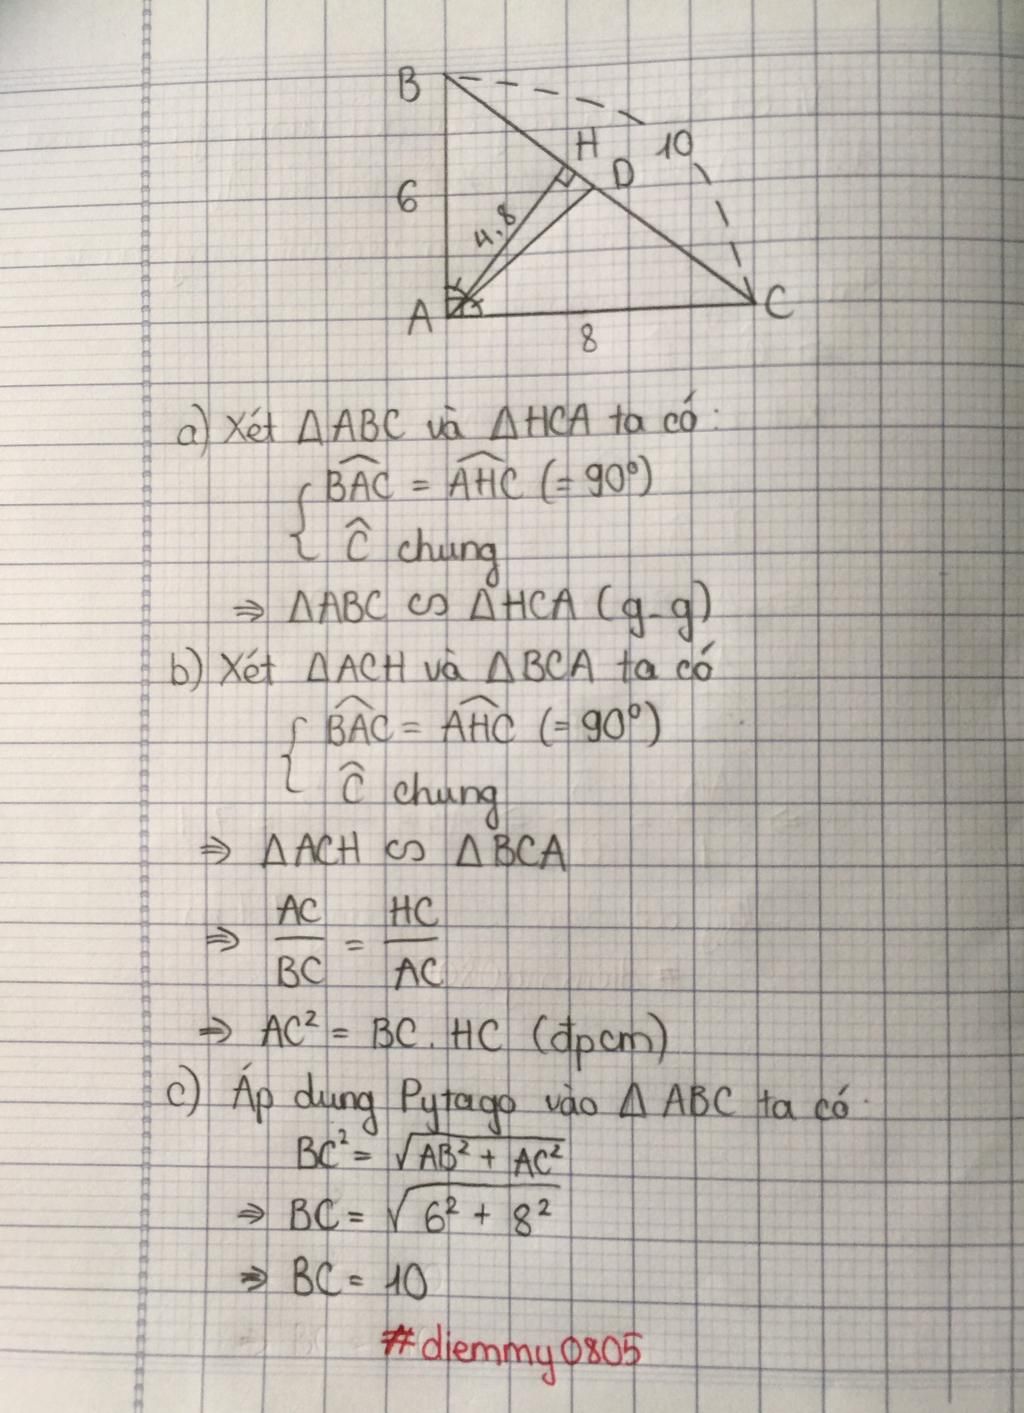 B
H
10
D
6
4,8
A
C
8
a) Xét ΔABC và ΔHCA ta có:
BAC = AHC (= 90⁰)
Ĉ chung
⇒ ΔABC ∽ ΔHCA (g-g)
b) Xét ΔACH và ΔBCA ta có
BAC = AHC (= 90⁰)
Ĉ chung
⇒ ΔACH ∽ ΔBCA
⇒ AC/BC = HC/AC
⇒ AC² = BC . HC (đpcm)
c) Áp dung Pytago vào Δ ABC ta có
BC² = √AB² + AC²
⇒ BC = √6² + 8²
⇒ BC = 10
#diemmy0805